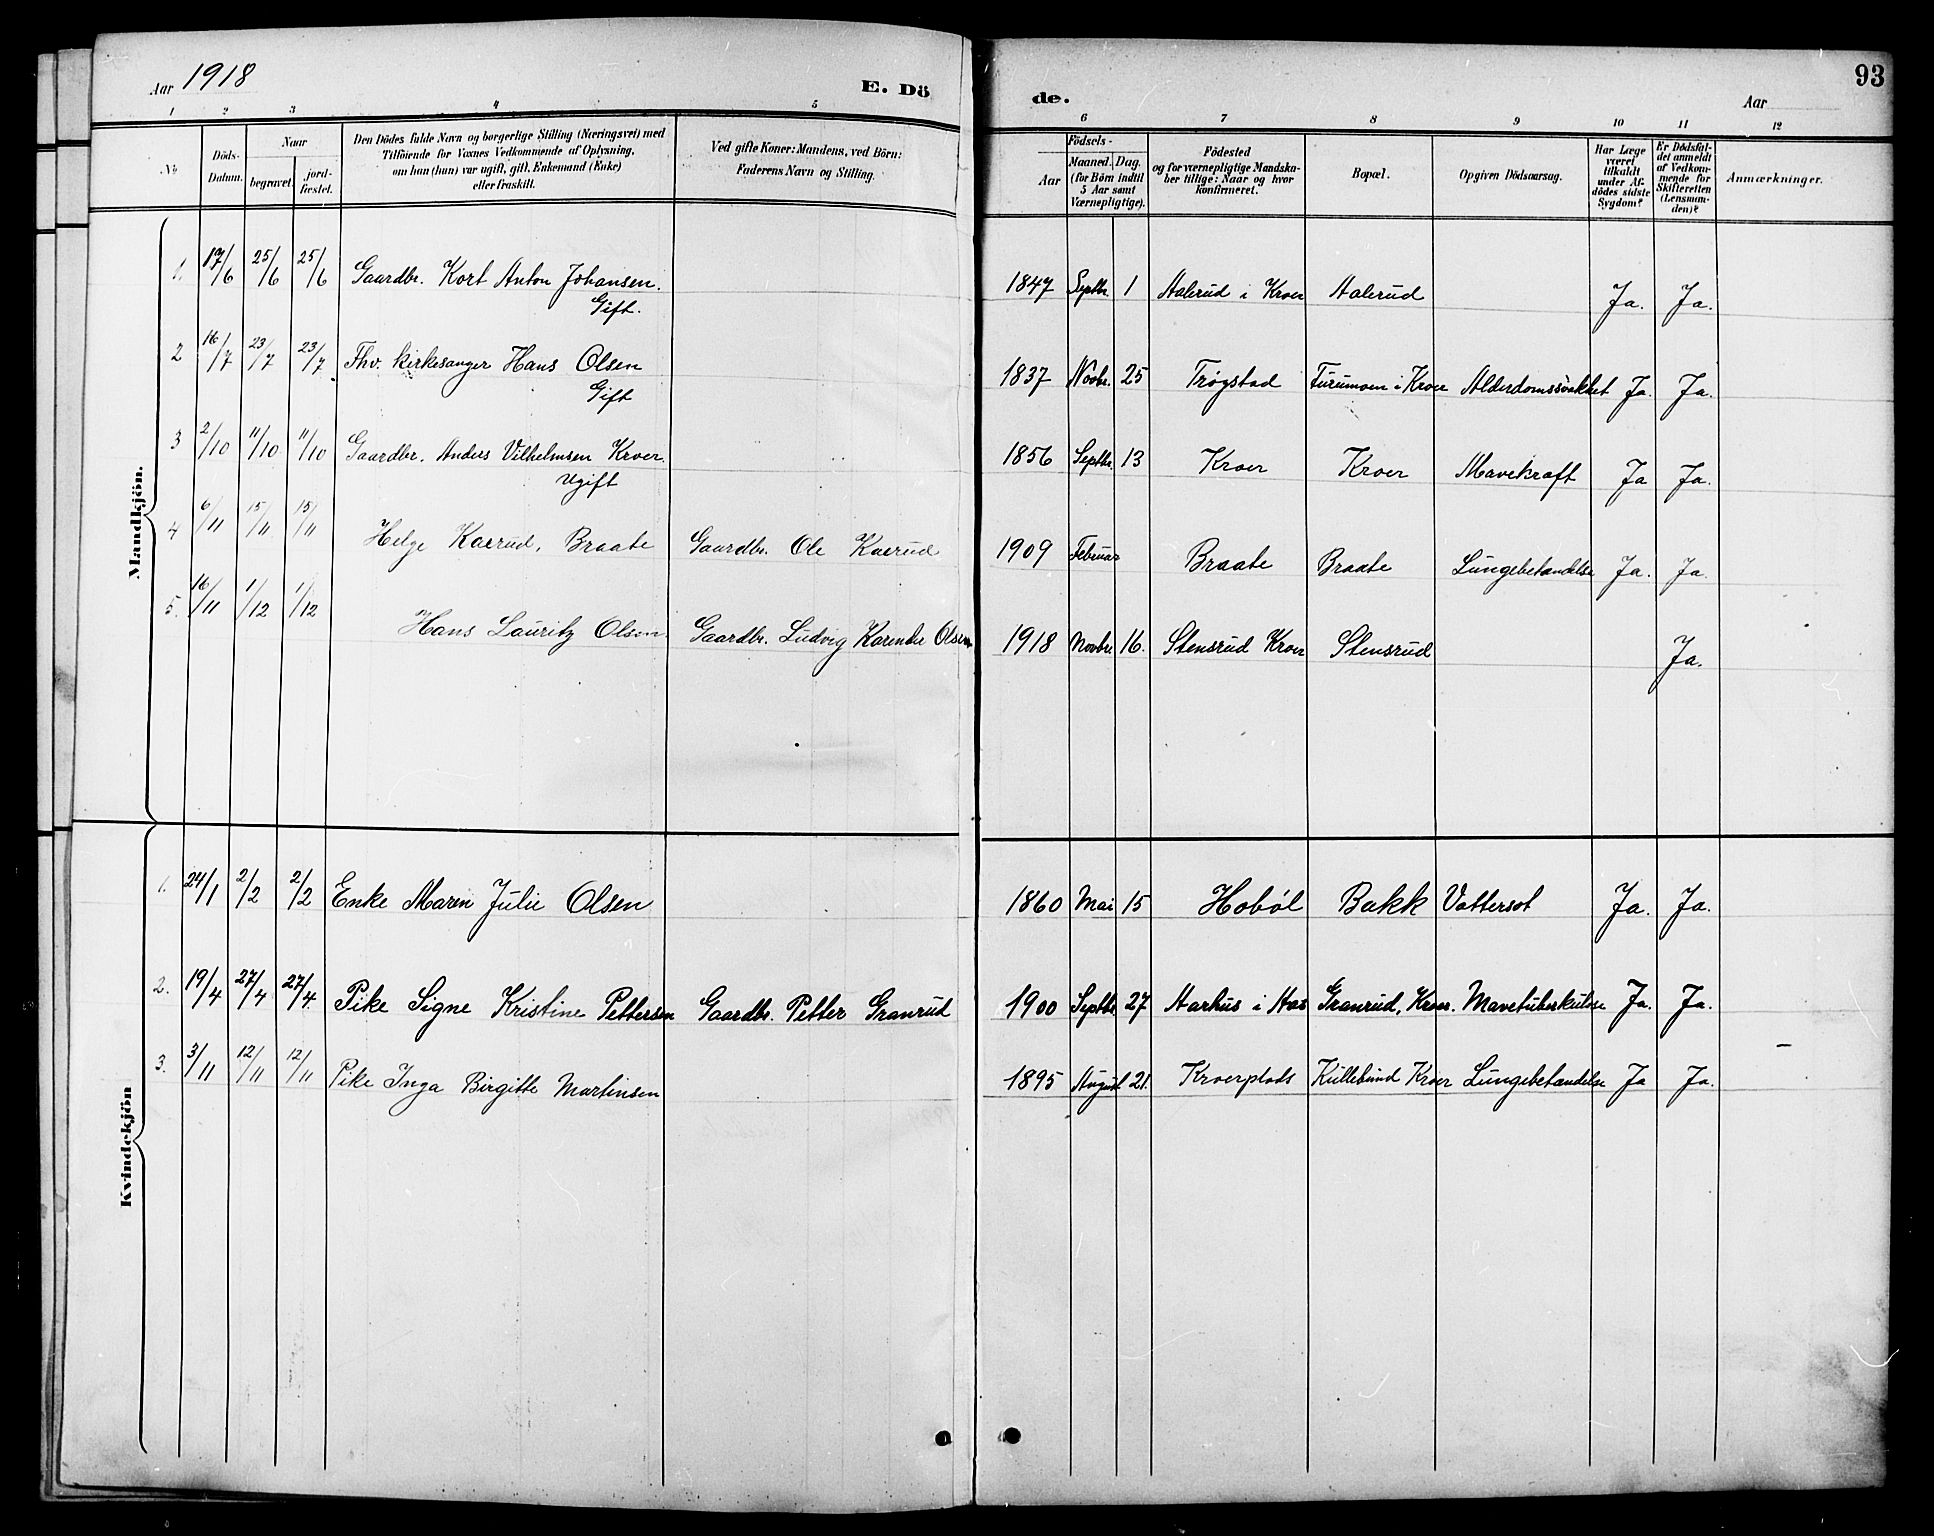 Aar 1918
E. Dö
de.
Aar
93
1 2 3 4 5 6 7 8 9 10 11 12
№
Döds-
Datum.
Naar
begravet.
jord-
fæstet.
Den Dödes fulde Navn og borgerlige Stilling (Næringsvei) med
Tilföiende for Voxnes Vedkommende af Oplysning,
om han (hun) var ugift, gift, Enkemand (Enke)
eller fraskilt.
Ved gifte Koner: Mandens, ved Börn:
Faderens Navn og Stilling.
Födsels-
Aar
Maaned. Dag.
(for Börn indtil
5 Aar samt
Værnepligtige).
Födested
og for værnepligtige Mandska-
ber tillige: Naar og hvor
konfirmeret.
Bopæl.
Opgiven Dödsaarsag.
Har Læge
været
tilkaldt
under Af-
dödes sidste
Sygdom?
Er Dödsfal-
det anmeldt
af Vedkom-
mende for
Skifteretten
(Lensman-
den)?
Anmærkninger.
Mandkjön.
1. 17/6 25/6 25/6 Gaardbr. Kort Anton Johansen. 1847 Septbr. 1 Aalerud i Kroer Aalerud Ja. Ja.
Gift.
2 16/7 23/7 23/7 Fhv. kirkesanger Hans Olsen 1837 Novbr. 25 Trøgstad Furumoen i Kroer Alderdomssvakhet Ja. Ja.
Gift
3 2/10 11/10 11/10 Gaardbr. Anders Vilhelmsen Kroer. 1856 Septbr. 13 Kroer Kroer Mavekræft Ja Ja.
Ugift
4 6/11 15/11 15/11 Helge Kaerud, Braate Gaardbr. Ole Kaerud 1909 Februar Braate Braate Lungebetændelse Ja. Ja.
5. 16/11 1/12 1/12 Hans Lauritz Olsen. Gaardbr. Ludvig Karender Olsen 1918 Novbr 16. Stensrud Kroer Stensrud Ja.
Kvindekjön
1. 24/1 2/2 2/2 Enke Maren Julie Olsen 1860 Mai 15 Hobøl Bakk Vattersot Ja. Ja.
2. 19/4 27/4 27/4. Pike Signe Kristine Pettersen Gaardbr. Petter Granrud 1900 Septbr. 27 Aarhus i Aas Granrud, Kroer. Mavetuberkulose Ja. Ja.
3. 3/11 12/11 12/11 Pike Inga Birgitte Martinsen 1895 August 21. Kroerplads Kullebund Kroer Lungebetændelse Ja Ja.